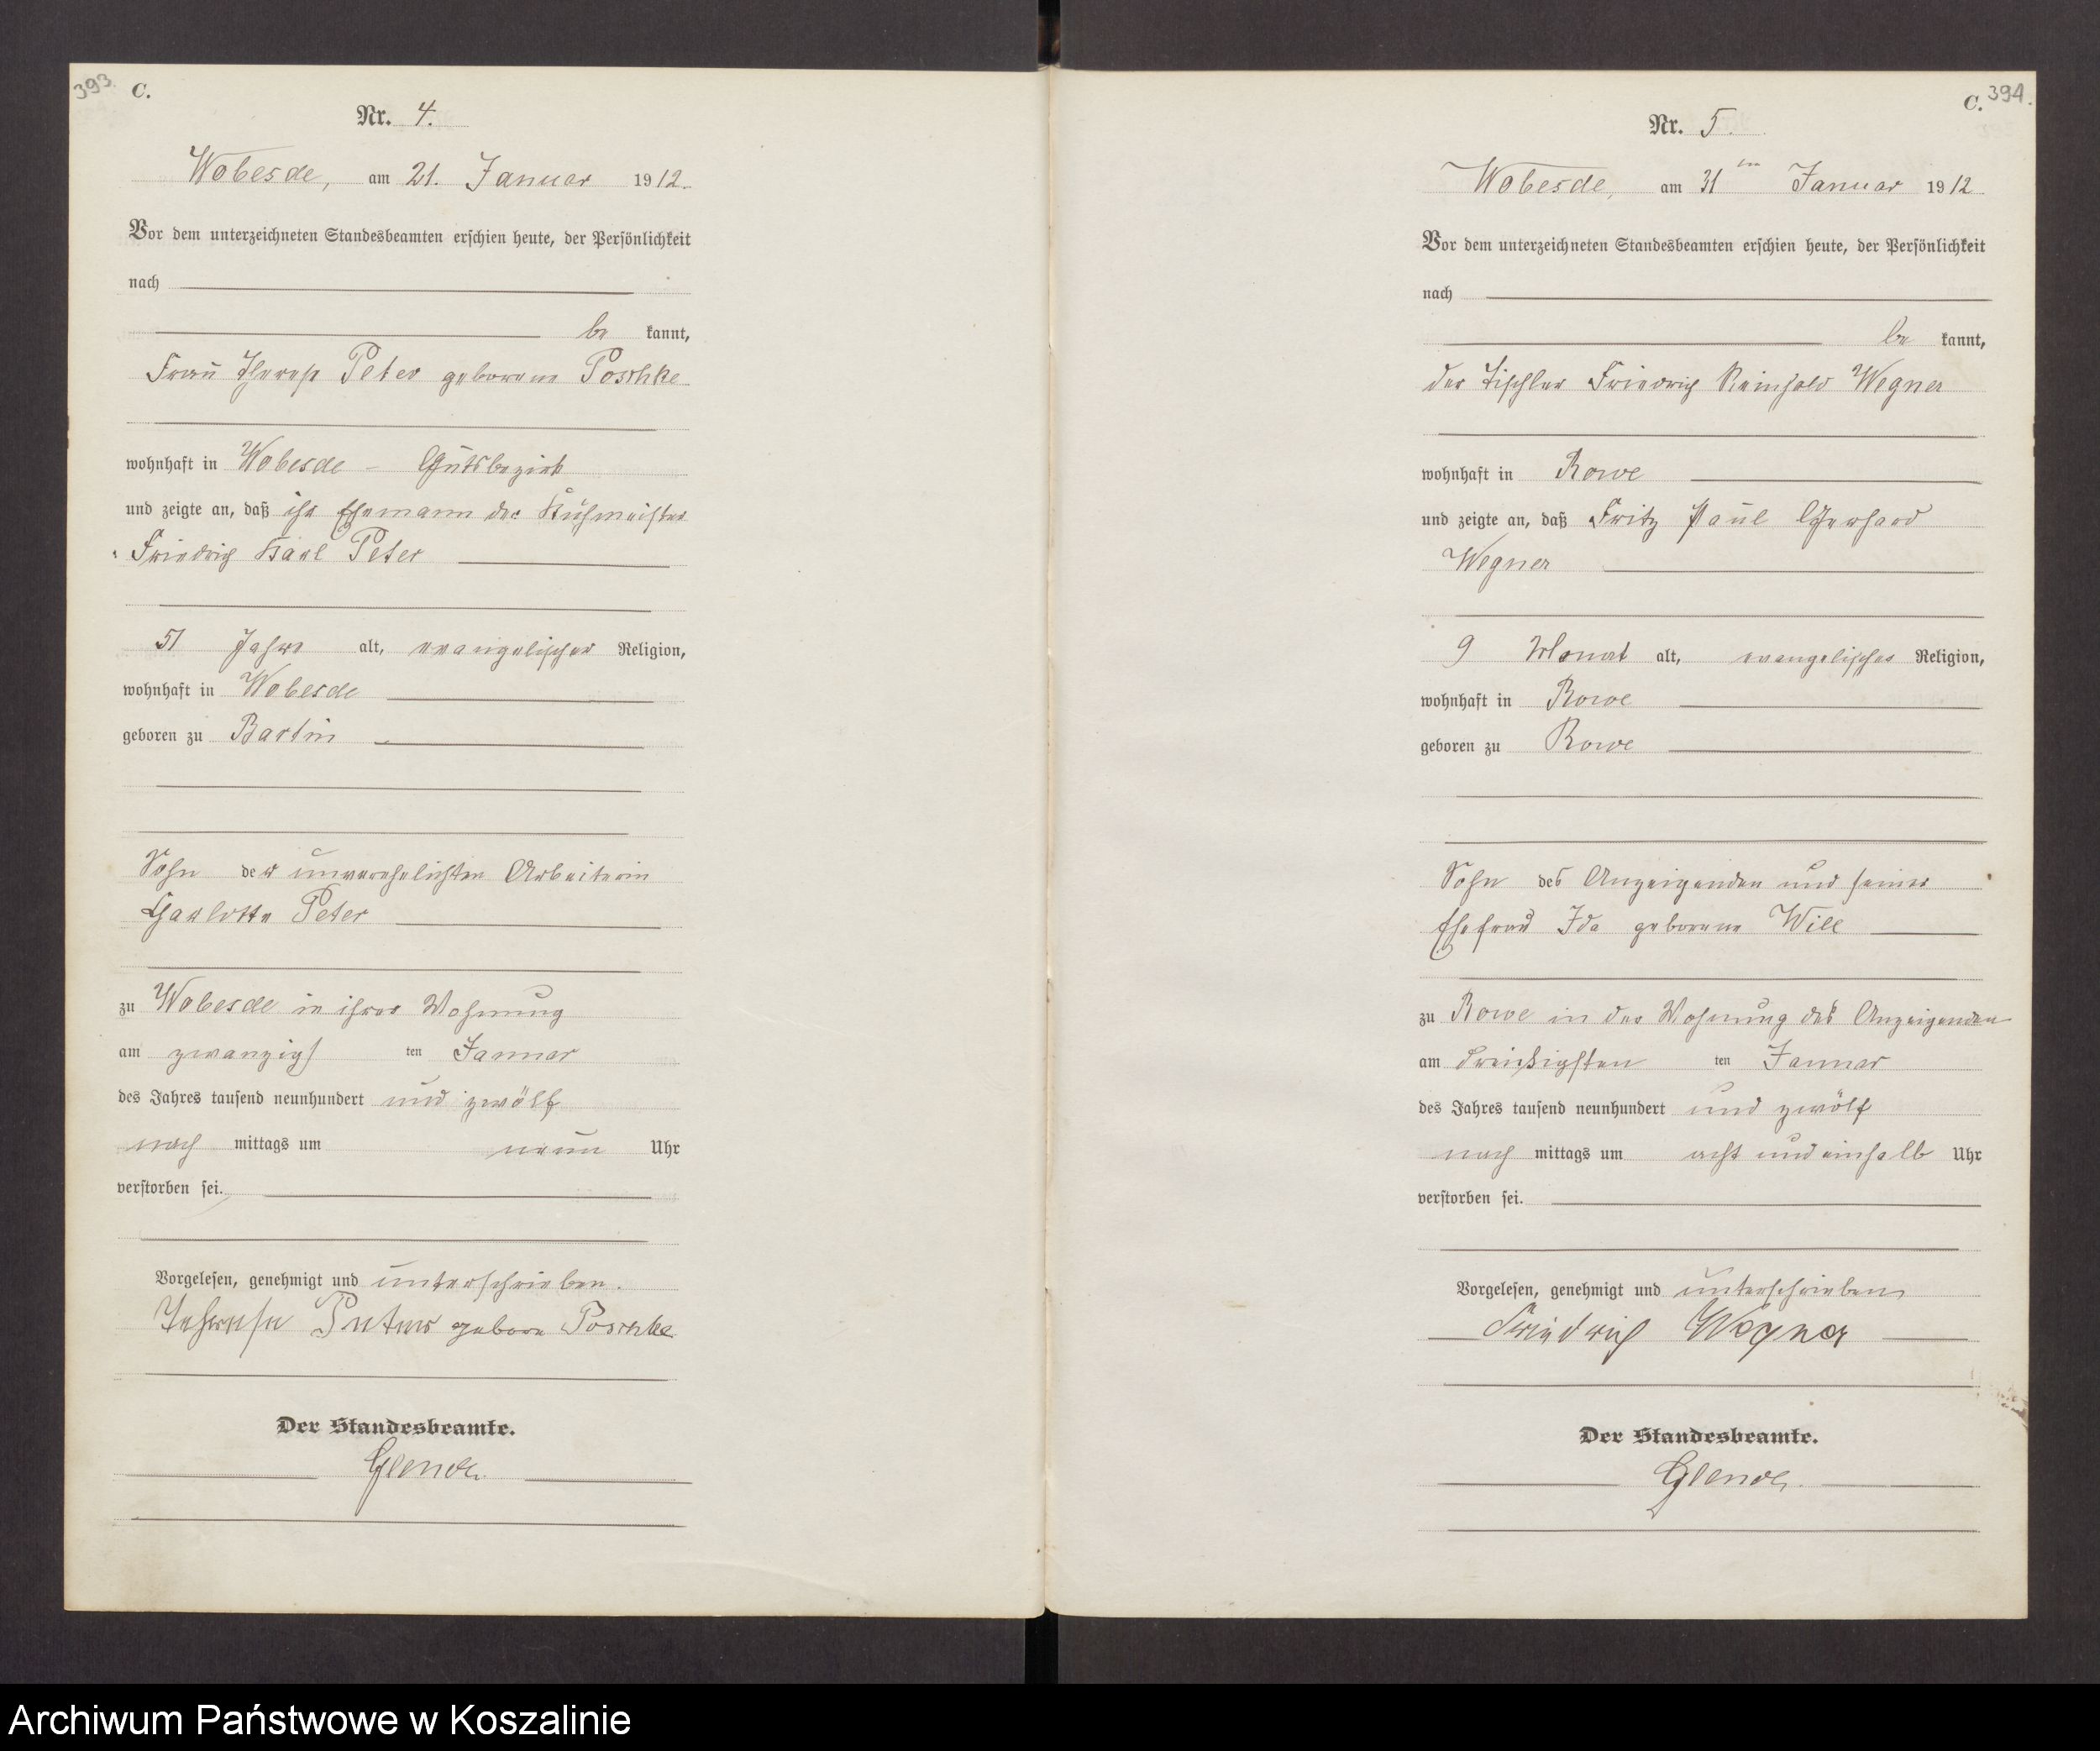 393.
C.
Nr. 4.
Wobesde, am 21. Januar 1912.
Vor dem unterzeichneten Standesbeamten erschien heute, der Persönlichkeit
nach
be kannt,
Frau Therese Peter geborene Poschke
wohnhaft in Wobesde - Gutsbezirk
und zeigte an, daß ihr Ehemann der Kuhmeister
Friedrich Karl Peter
51 Jahre alt, evangelischer Religion,
wohnhaft in Wobesde
geboren zu Bartin
Sohn der unverehelichten Arbeiterin
Charlotte Peter
zu Wobesde in ihrer Wohnung
am zwanzigs ten Januar
des Jahres tausend neunhundert und zwölf
nach mittags um neun Uhr
verstorben sei.
Vorgelesen, genehmigt und unterschrieben.
Peter gebore Poschke
Der Standesbeamte.
394.
C.
Nr. 5.
Wobesde, am 31ten Januar 1912
Vor dem unterzeichneten Standesbeamten erschien heute, der Persönlichkeit
nach
be kannt,
der Tischler Friedrich Reinhold Wegner
wohnhaft in Rowe
und zeigte an, daß Fritz Paul Gerhard
Wegner
9 Monat alt, evangelischer Religion,
wohnhaft in Rowe
geboren zu Rowe
Sohn des Anzeigenden und seiner
Ehefrau Ida geborene Will
zu Rowe in der Wohnung des Anzeigenden
am dreißigsten ten Januar
des Jahres tausend neunhundert und zwölf
nach mittags um acht und einhalb Uhr
verstorben sei.
Vorgelesen, genehmigt und unterschrieben
Friedrich Wegner
Der Standesbeamte.
Archiwum Państwowe w Koszalinie